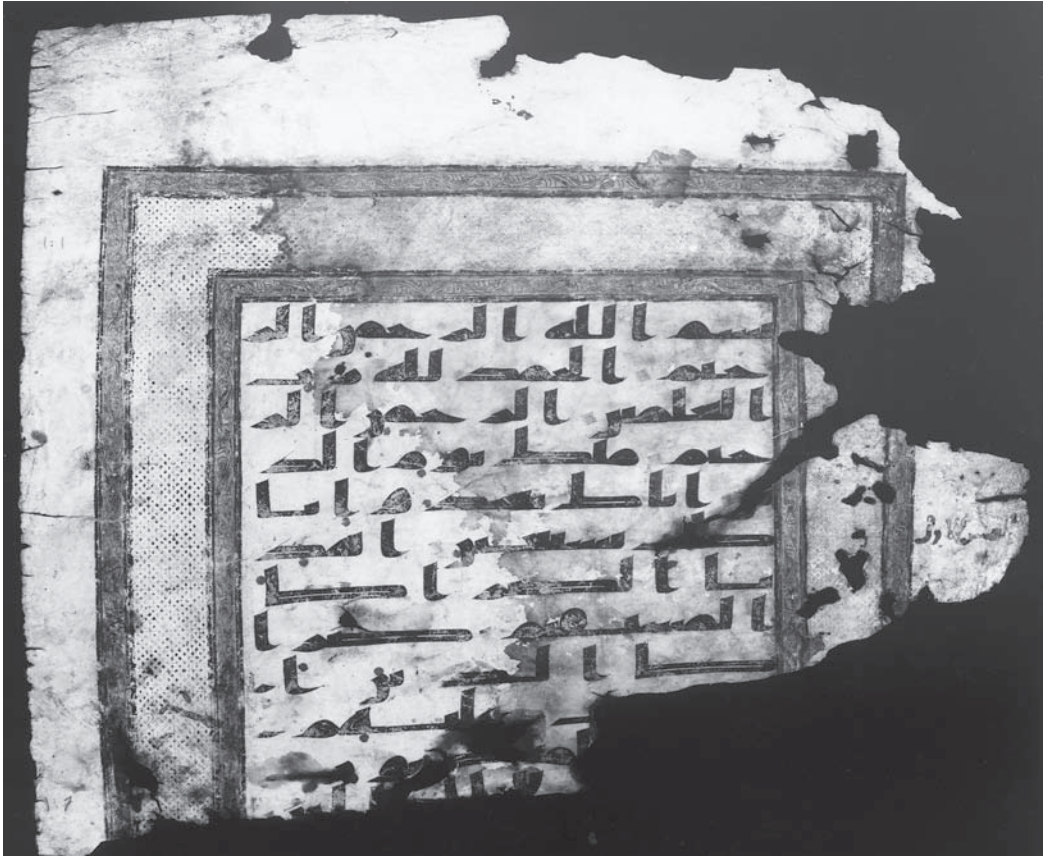 بسم الله الرحمن الر
حيم الحمد لله رب
العلمين الرحمن الر
حيم ملك يوم الد
اياك نعبد و ايا
ك نستعين اهد
نا الصراط
المستقيم صرا
ط الذين ان
عليهم